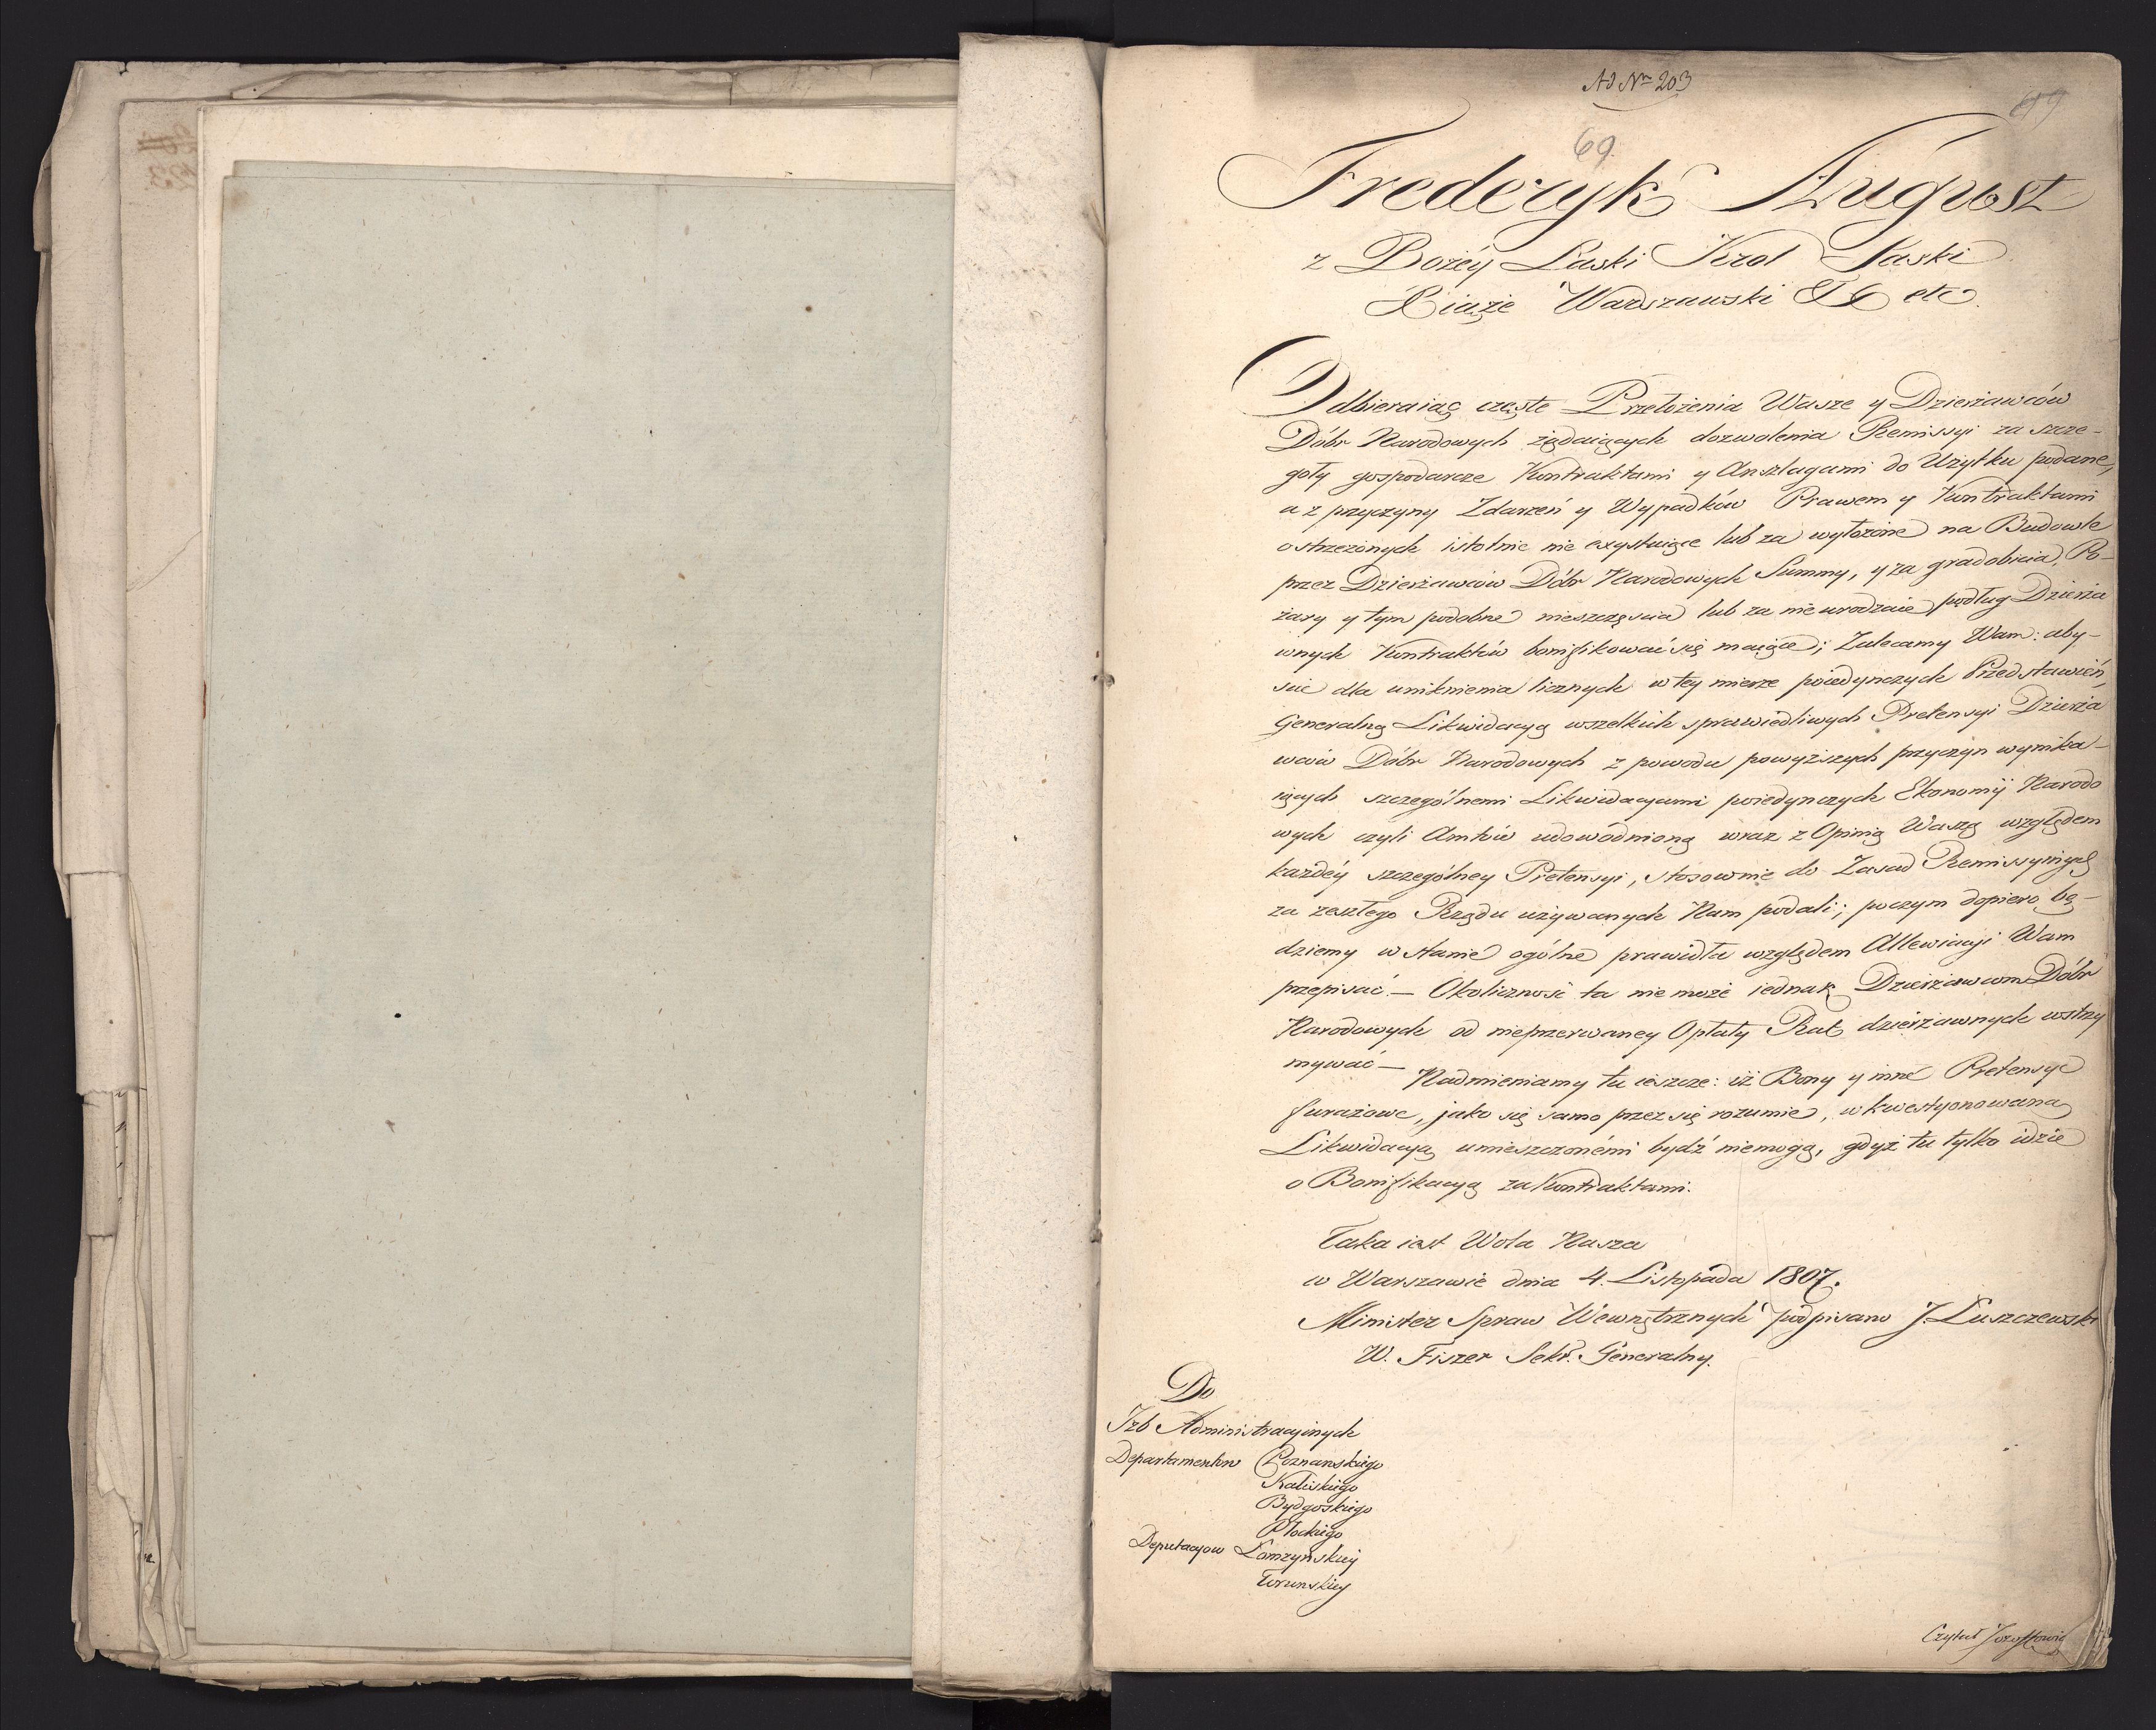 Ad Nr 203
69
69.
Frederyk August
z Bożéy Łaski Krol Saski
Xiąże Warszawski &c &c etc.
Odbieraiąc częste Przełożenia Wasze y Dzierżawców
Dóbr Narodowych żądaiących dozwolenia Remissyi za szcze-
goły gospodarcze Kontraktami y Anszlagami do Użytku podane,
a z przyczyny Zdarzeń y Wypadków Prawem y Kontraktami
ostrzeżonych istotnie nie exystuiące lub za wyłożone na Budowle
przez Dzierżawców Dóbr Narodowych Summy, y za gradobicia, Po-
żary y tym podobne nieszczęscia lub za nieurodzaie podług Dzierża
wnych Kontraktów bonifikować się maiące; Zalecamy Wam: aby-
scie dla uniknienia licznych w tey mierze poiedynczych Przedstawień,
Generalną Likwidacyą wszelkich sprawiedliwych Pretensyi Dzierża
wców Dóbr Narodowych z powodu powyższych przyczyn wynika-
iących szczególnemi Likwidacyami poiedynczych Ekonomij Narodo
wych czyli Amtów udowodnioną wraz z Opinią Waszą względem
każdéy szczególney Pretensyi, stosownie do Zasad Remissyinych
za zeszłego Rządu używanych Nam podali; poczym dopiero bę-
dziemy w stanie ogólne prawidła względem Allewiacyi Wam
przepisać — Okoliczność ta nie może iednak Dzierżawcom Dóbr
Narodowych od nieprzerwaney Opłaty Rat dzierżawnych wstrzy
mywać — Nadmieniamy tu ieszcze: iż Bony y inne Pretensye
furażowe, jako się samo przez się rozumie, w kwestyonowaną
Likwidacyą umieszczonémi bydź niemogą, gdyż tu tylko idzie
o Bonifikacyą za Kontraktami.
Taka iest Wola Nasza
w Warszawie dnia 4. Listopada 1807.
Minister Spraw Wewnętrznych podpisano J. Łuszczewski
W. Fiszer Sekr. Generalny.
Do
Izb Administracyinych
Departamentow Poznanskiego
Kaliskiego
Bydgoskiego
Płockiego
Deputacyow Łomzyńskiey
Torunskiey
Czytał